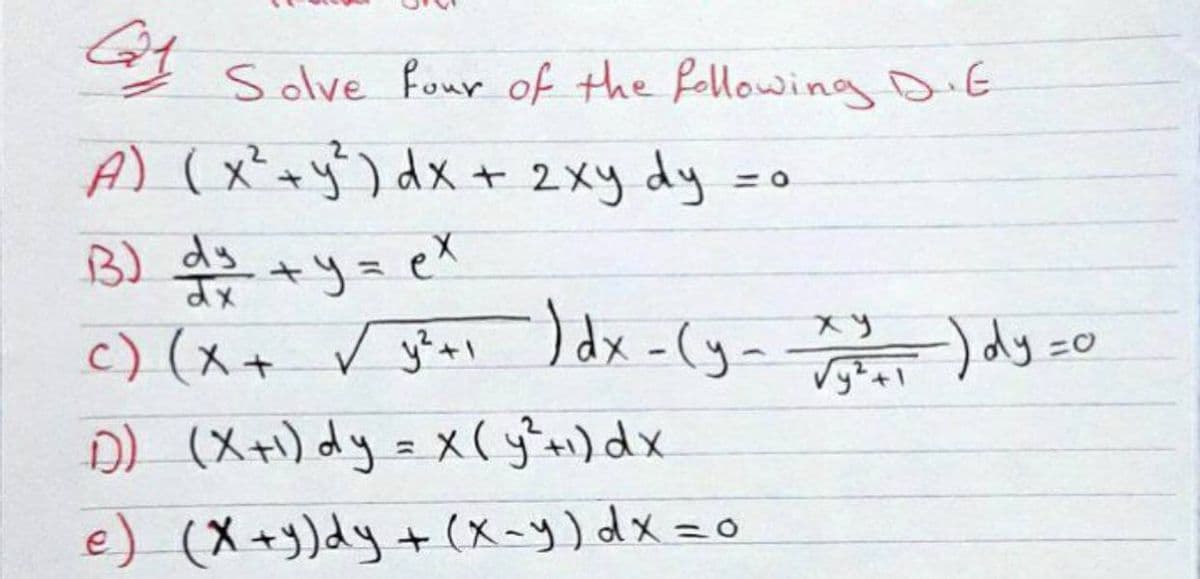 Q1 Solve four of the following D.E
A) (x²+y²) dx + 2xy dy = 0
B) dy/dx + y = eˣ
c) (x + √(y²+1)) dx - (y - xy/√(y²+1)) dy = 0
D) (x+1) dy = x(y²+1) dx
e) (x+y)dy + (x-y) dx = 0